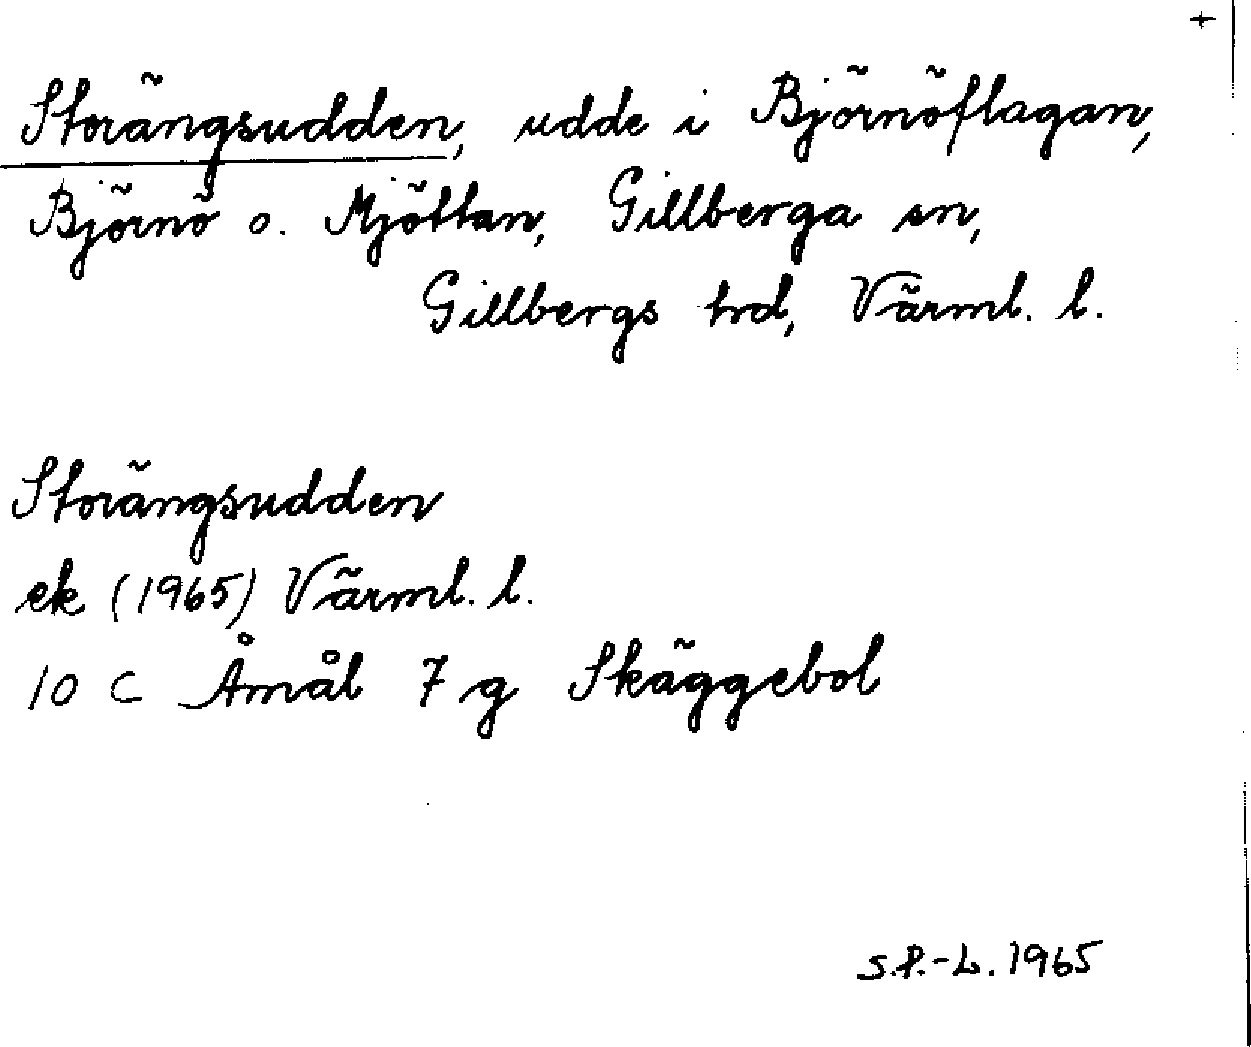 +
Storängsudden, udde i Björnöflagan,
Björnö o. Mjöttan, Gillberga sn,
Gillbergs hrd, Värml. l.
Storängsudden
ek (1965) Värml. l.
10 C Åmål 7 g Skäggebol
S.P.-L. 1965